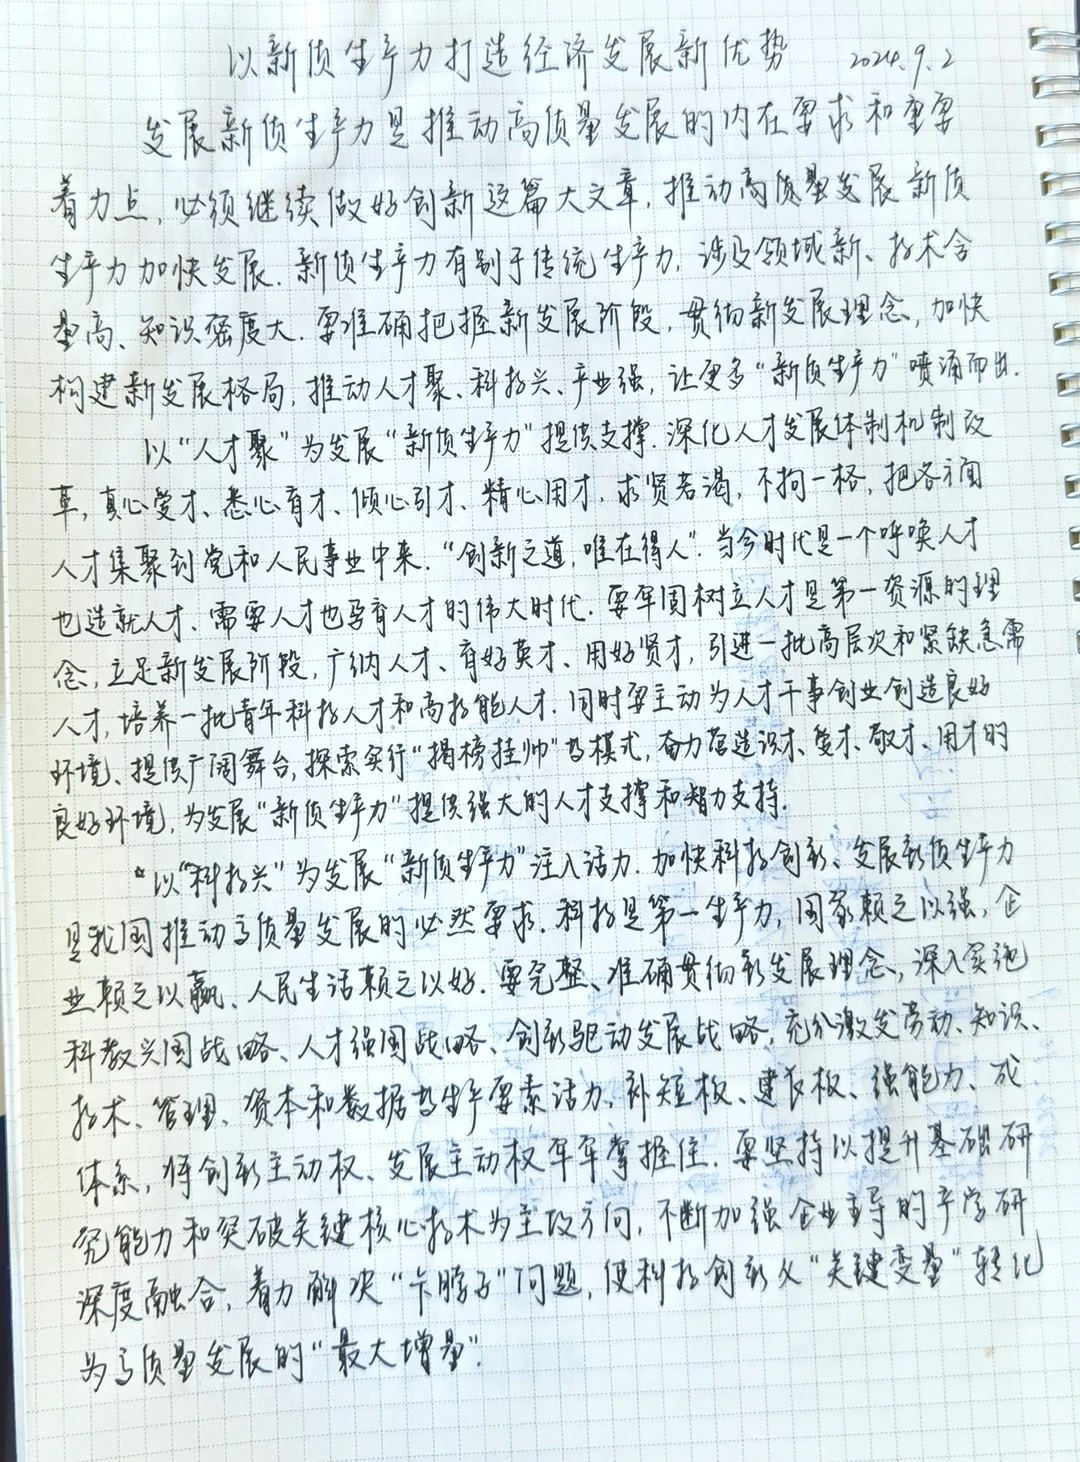 以新质生产力打造经济发展新优势 2024.9.2
发展新质生产力是推动高质量发展的内在要求和重要
着力点，必须继续做好创新这篇大文章，推动高质量发展新质
生产力加快发展。新质生产力有别于传统生产力，涉及领域新、技术含
量高、知识密度大。要准确把握新发展阶段，贯彻新发展理念，加快
构建新发展格局，推动人才聚、科技兴、产业强，让更多“新质生产力”喷涌而出。
以“人才聚”为发展“新质生产力”提供支撑。深化人才发展体制机制改
革，真心爱才、悉心育才、倾心引才、精心用才，求贤若渴，不拘一格，把各方面
人才集聚到党和人民事业中来。“创新之道，唯在得人”。当今时代是一个呼唤人才
也造就人才、需要人才也孕育人才的伟大时代。要牢固树立人才是第一资源的理
念，立足新发展阶段，广纳人才、育好英才、用好贤才，引进一批高层次和紧缺急需
人才，培养一批青年科技人才和高技能人才。同时要主动为人才干事创业创造良好
环境、提供广阔舞台，探索实行“揭榜挂帅”等模式，奋力营造识才、爱才、敬才、用才的
良好环境，为发展“新质生产力”提供强大的人才支撑和智力支持。
*以“科技兴”为发展“新质生产力”注入活力。加快科技创新、发展新质生产力
是我国推动高质量发展的必然要求。科技是第一生产力，国家赖之以强，企
业赖之以赢、人民生活赖之以好。要完整、准确贯彻新发展理念，深入实施
科教兴国战略、人才强国战略、创新驱动发展战略，充分激发劳动、知识、
技术、管理、资本和数据等生产要素活力，补短板、建长板、强能力、成
体系，将创新主动权、发展主动权牢牢掌握住。要坚持以提升基础研
究能力和突破关键核心技术为主攻方向，不断加强企业主导的产学研
深度融合，着力解决“卡脖子”问题，使科技创新从“关键变量”转化
为高质量发展的“最大增量”。